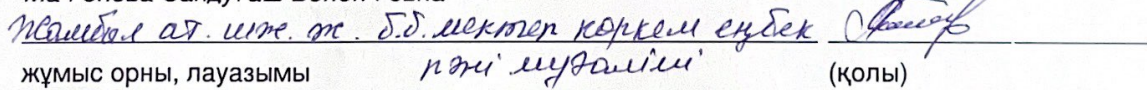 Жамбыл ат. шж. ж. б.б. мектеп көркем еңбек
пәні мұғалімі
жұмыс орны, лауазымы (қолы)